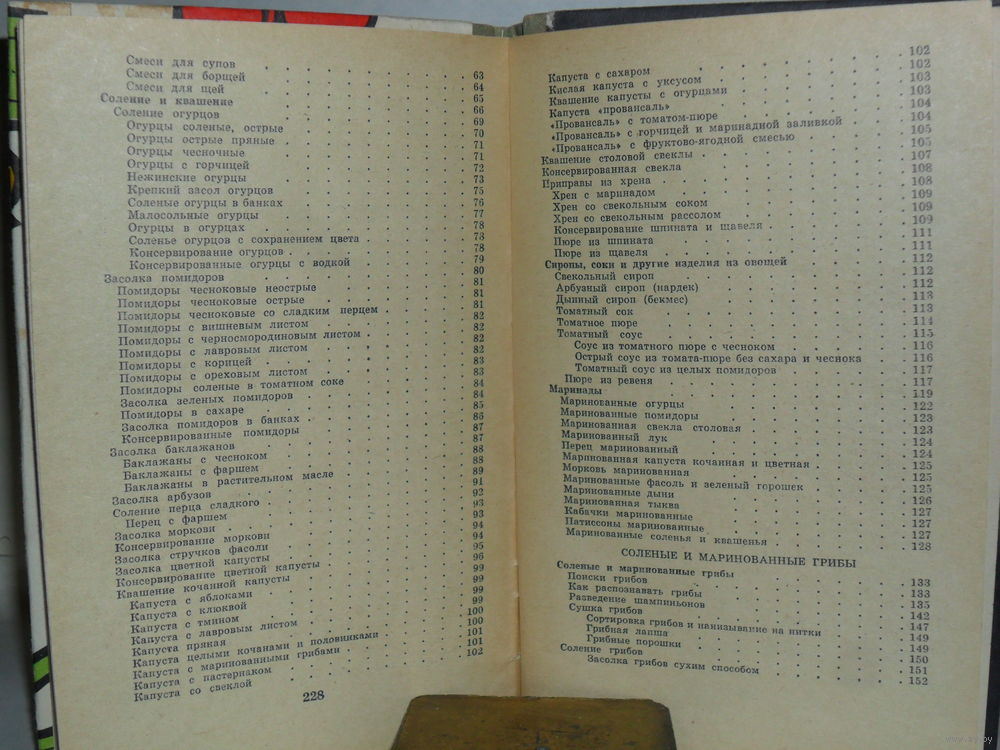 Смеси для супов 63
Смеси для борщей 64
Смеси для щей 65
Соление и квашение 66
Соление огурцов 69
Огурцы соленые, острые 70
Огурцы острые пряные 71
Огурцы чесночные 71
Огурцы с горчицей 72
Нежинские огурцы 73
Крепкий засол огурцов 75
Соленые огурцы в банках 76
Малосольные огурцы 77
Огурцы в огурцах 78
Соленье огурцов с сохранением цвета 78
Консервирование огурцов 78
Консервированные огурцы с водкой 79
Засолка помидоров 80
Помидоры чесноковые неострые 81
Помидоры чесноковые острые 81
Помидоры чесноковые со сладким перцем 81
Помидоры с вишневым листом 82
Помидоры с черносмородиновым листом 82
Помидоры с лавровым листом 82
Помидоры с корицей 82
Помидоры с ореховым листом 83
Помидоры соленые в томатном соке 83
Засолка зеленых помидоров 84
Помидоры в сахаре 84
Засолка помидоров в банках 85
Консервированные помидоры 86
Засолка баклажанов 87
Баклажаны с чесноком 87
Баклажаны с фаршем 88
Баклажаны в растительном масле 88
Засолка арбузов 89
Соление перца сладкого 91
Перец с фаршем 92
Засолка моркови 93
Консервирование моркови 93
Засолка стручков фасоли 94
Засолка цветной капусты 94
Консервирование цветной капусты 95
Квашение кочанной капусты 96
Капуста с яблоками 99
Капуста с клюквой 99
Капуста с тмином 99
Капуста с лавровым листом 99
Капуста пряная 100
Капуста целыми кочанами и половинками 100
Капуста с маринованными грибами 101
Капуста с пастернаком 101
Капуста со свеклой 102
228
Капуста с сахаром 102
Кислая капуста с уксусом 102
Квашение капусты с огурцами 103
Капуста «провансаль» 103
«Провансаль» с томатом-пюре 104
«Провансаль» с горчицей и маринадной заливкой 104
«Провансаль» с фруктово-ягодной смесью 105
Квашение столовой свеклы 105
Консервированная свекла 107
Приправы из хрена 108
Хрен с маринадом 108
Хрен со свекольным соком 109
Хрен со свекольным рассолом 109
Консервирование шпината и щавеля 109
Пюре из шпината 111
Пюре из щавеля 111
Сиропы, соки и другие изделия из овощей 112
Свекольный сироп 112
Арбузный сироп (нардек) 112
Дынный сироп (бекмес) 113
Томатный сок 113
Томатное пюре 114
Томатный соус 115
Соус из томатного пюре с чесноком 116
Острый соус из томата-пюре без сахара и чеснока 116
Томатный соус из целых помидоров 117
Пюре из ревеня 117
Маринады 119
Маринованные огурцы 122
Маринованные помидоры 123
Маринованная свекла столовая 123
Маринованный лук 124
Перец маринованный 124
Маринованная капуста кочанная и цветная 125
Морковь маринованная 125
Маринованные фасоль и зеленый горошек 125
Маринованные дыни 126
Маринованная тыква 127
Кабачки маринованные 127
Патиссоны маринованные 127
Маринованные соленья и квашенья 128
СОЛЕНЫЕ И МАРИНОВАННЫЕ ГРИБЫ
Соленые и маринованные грибы 133
Поиски грибов 133
Как распознавать грибы 135
Разведение шампиньонов 142
Сушка грибов 147
Сортировка грибов и нанизывание на нитки 149
Грибная лапша 149
Грибные порошки 150
Соление грибов 151
Засолка грибов сухим способом 152